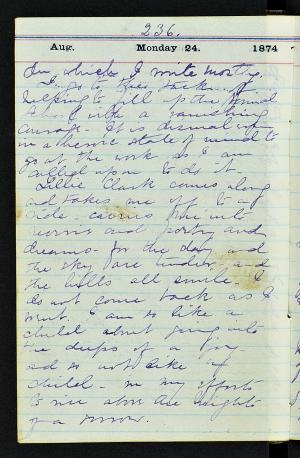 236.
Aug. Monday 24. 1874
In which I write mostly.
I go to
helping to fill up the
with a vanishing
It is dismal
in a state of mind to
go at the work as I am
called upon to do it.
Lillie Clark comes along
and takes me off to
ride - carries me into
and poetry and
dreams - for the day and
the sky are tender and
the hills all smile. I
do not come back as I
went. I am so like a
child about going into
the deeps of a joy -
and so not like a
child - in my efforts
to rise above the heights
of a sorrow.